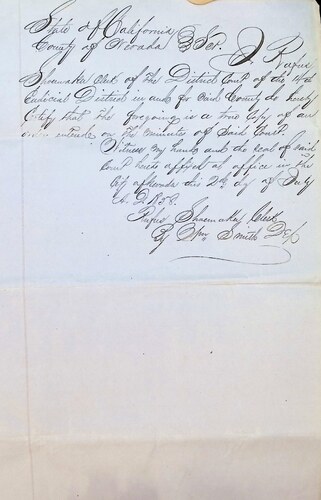 State of California
County of Nevada } Sct. I Rufus
Shoemaker Clerk of the District Court of the 14th
Judicial District in and for said County do hereby
Certify that the foregoing is a true Copy of an
order entered on the minutes of said Court.
Witness my hand and the seal of said
Court hereto affixed at office in the
City aforesaid this 2nd day of July
A. D. 1858.
Rufus Shoemaker Clerk
By Wm Smith Dep